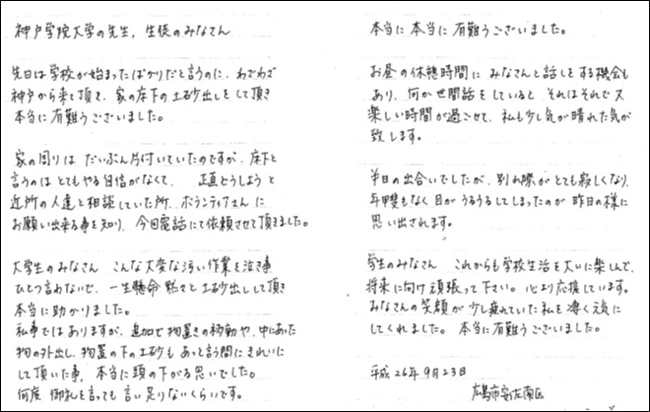 神戸学院大学の先生，生徒のみなさん
先日は学校が始まったばかりだと言うのに，わざわざ
神戸から来て頂き，家の床下の土砂出しをして頂き
本当に有難うございました。
家の周りは だいぶん片付いていたのですが，床下と
言うのは とてもやる自信がなくて， 正直どうしようと
近所の人達と相談していた所，ボランティアさんに
お願い出来る事を知り，今回電話にて依頼させて頂きました。
大学生のみなさん こんな大変な汚い作業を泣き事
ひとつ言わないで，一生懸命 黙々と土砂出しして頂き
本当に助かりました。
私事ではありますが，追加で物置きの移動や，中にあった
物の外出し，物置の下の土砂も あっと言う間にきれいに
して頂いた事，本当に頭の下がる思いでした。
何度 御礼を言っても 言い足りないくらいです。
本当に 本当に 有難うございました。
お昼の休憩時間に みなさんと話しをする機会も
あり，何か世間話をしていると それはそれで又
楽しい時間が過ごせて，私も少し気が晴れた気が
致します。
半日の出合いでしたが，別れ際がとても寂しくなり，
年甲斐もなく目がうるうるしてしまったのが 昨日の様に
思い出されます。
学生のみなさん これからも学校生活を大いに楽しんで，
将来に向け頑張って下さい。心より応援しています。
みなさんの笑顔が 少し疲れていた私を 凄く元気に
してくれました。本当に有難うございました。
平成26年9月23日
広島市安佐南区